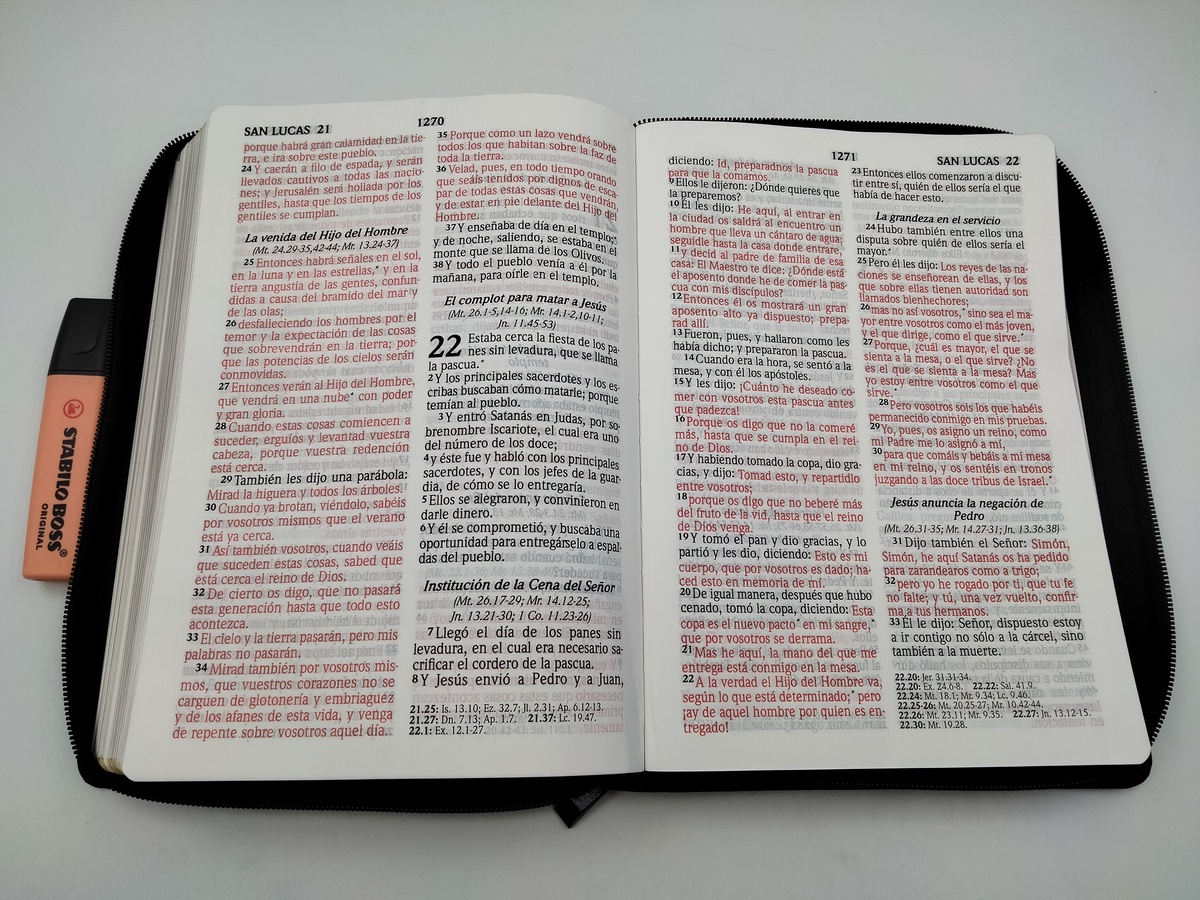 SAN LUCAS 21
1270
porque habrá gran calamidad en la tie-
rra, e ira sobre este pueblo.
24 Y caerán a filo de espada, y serán
llevados cautivos a todas las nacio-
nes; y Jerusalén será hollada por los
gentiles, hasta que los tiempos de los
gentiles se cumplan.
La venida del Hijo del Hombre
(Mt. 24.29-35,42-44; Mr. 13.24-37)
25 Entonces habrá señales en el sol,
en la luna y en las estrellas,* y en la
tierra angustia de las gentes, confun-
didas a causa del bramido del mar y
de las olas;
26 desfalleciendo los hombres por el
temor y la expectación de las cosas
que sobrevendrán en la tierra; por-
que las potencias de los cielos serán
conmovidas.
27 Entonces verán al Hijo del Hombre,
que vendrá en una nube* con poder
y gran gloria.
28 Cuando estas cosas comiencen a
suceder, erguíos y levantad vuestra
cabeza, porque vuestra redención
está cerca.
29 También les dijo una parábola:
Mirad la higuera y todos los árboles.
30 Cuando ya brotan, viéndolo, sabéis
por vosotros mismos que el verano
está ya cerca.
31 Así también vosotros, cuando veáis
que suceden estas cosas, sabed que
está cerca el reino de Dios.
32 De cierto os digo, que no pasará
esta generación hasta que todo esto
acontezca.
33 El cielo y la tierra pasarán, pero mis
palabras no pasarán.
34 Mirad también por vosotros mis-
mos, que vuestros corazones no se
carguen de glotonería y embriaguez
y de los afanes de esta vida, y venga
de repente sobre vosotros aquel día.
35 Porque como un lazo vendrá sobre
todos los que habitan sobre la faz de
toda la tierra.
36 Velad, pues, en todo tiempo orando
que seáis tenidos por dignos de esca-
par de todas estas cosas que vendrán,
y de estar en pie delante del Hijo del
Hombre.
37 Y enseñaba de día en el templo;*
y de noche, saliendo, se estaba en el
monte que se llama de los Olivos.
38 Y todo el pueblo venía a él por la
mañana, para oírle en el templo.
El complot para matar a Jesús
(Mt. 26.1-5,14-16; Mr. 14.1-2,10-11;
Jn. 11.45-53)
22 Estaba cerca la fiesta de los pa-
nes sin levadura, que se llama
la pascua.*
2 Y los principales sacerdotes y los es-
cribas buscaban cómo matarle; porque
temían al pueblo.
3 Y entró Satanás en Judas, por so-
brenombre Iscariote, el cual era uno
del número de los doce;
4 y éste fue y habló con los principales
sacerdotes, y con los jefes de la guar-
dia, de cómo se lo entregaría.
5 Ellos se alegraron, y convinieron en
darle dinero.
6 Y él se comprometió, y buscaba una
oportunidad para entregárselo a espal-
das del pueblo.
Institución de la Cena del Señor
(Mt. 26.17-29; Mr. 14.12-25;
Jn. 13.21-30; 1 Co. 11.23-26)
7 Llegó el día de los panes sin
levadura, en el cual era necesario sa-
crificar el cordero de la pascua.
8 Y Jesús envió a Pedro y a Juan,
21.25: Is. 13.10; Ez. 32.7; Jl. 2.31; Ap. 6.12-13.
21.27: Dn. 7.13; Ap. 1.7. 21.37: Lc. 19.47.
22.1: Ex. 12.1-27.
1271
SAN LUCAS 22
diciendo: Id, preparadnos la pascua
para que la comamos.
9 Ellos le dijeron: ¿Dónde quieres que
la preparemos?
10 Él les dijo: He aquí, al entrar en
la ciudad os saldrá al encuentro un
hombre que lleva un cántaro de agua;
seguidle hasta la casa donde entrare,
11 y decid al padre de familia de esa
casa: El Maestro te dice: ¿Dónde está
el aposento donde he de comer la pas-
cua con mis discípulos?
12 Entonces él os mostrará un gran
aposento alto ya dispuesto; prepa-
rad allí.
13 Fueron, pues, y hallaron como les
había dicho; y prepararon la pascua.
14 Cuando era la hora, se sentó a la
mesa, y con él los apóstoles.
15 Y les dijo: ¡Cuánto he deseado co-
mer con vosotros esta pascua antes
que padezca!
16 Porque os digo que no la comeré
más, hasta que se cumpla en el rei-
no de Dios.
17 Y habiendo tomado la copa, dio gra-
cias, y dijo: Tomad esto, y repartidlo
entre vosotros;
18 porque os digo que no beberé más
del fruto de la vid, hasta que el reino
de Dios venga.
19 Y tomó el pan y dio gracias, y lo
partió y les dio, diciendo: Esto es mi
cuerpo, que por vosotros es dado; ha-
ced esto en memoria de mí.
20 De igual manera, después que hubo
cenado, tomó la copa, diciendo: Esta
copa es el nuevo pacto* en mi sangre,*
que por vosotros se derrama.
21 Mas he aquí, la mano del que me
entrega está conmigo en la mesa.
22 A la verdad el Hijo del Hombre va,
según lo que está determinado;* pero
¡ay de aquel hombre por quien es en-
tregado!
23 Entonces ellos comenzaron a discu-
tir entre sí, quién de ellos sería el que
había de hacer esto.
La grandeza en el servicio
24 Hubo también entre ellos una
disputa sobre quién de ellos sería el
mayor.*
25 Pero él les dijo: Los reyes de las na-
ciones se enseñorean de ellas, y los
que sobre ellas tienen autoridad son
llamados bienhechores;
26 mas no así vosotros,* sino sea el ma-
yor entre vosotros como el más joven,
y el que dirige, como el que sirve.*
27 Porque, ¿cuál es mayor, el que se
sienta a la mesa, o el que sirve? ¿No
es el que se sienta a la mesa? Mas
yo estoy entre vosotros como el que
sirve.*
28 Pero vosotros sois los que habéis
permanecido conmigo en mis pruebas.
29 Yo, pues, os asigno un reino, como
mi Padre me lo asignó a mí,
30 para que comáis y bebáis a mi mesa
en mi reino, y os sentéis en tronos
juzgando a las doce tribus de Israel.*
Jesús anuncia la negación de
Pedro
(Mt. 26.31-35; Mr. 14.27-31; Jn. 13.36-38)
31 Dijo también el Señor: Simón,
Simón, he aquí Satanás os ha pedido
para zarandearos como a trigo;
32 pero yo he rogado por ti, que tu fe
no falte; y tú, una vez vuelto, confir-
ma a tus hermanos.
33 Él le dijo: Señor, dispuesto estoy
a ir contigo no sólo a la cárcel, sino
también a la muerte.
22.20: Jer. 31.31-34.
22.20: Ex. 24.6-8. 22.22: Sal. 41.9.
22.24: Mt. 18.1; Mr. 9.34; Lc. 9.46.
22.25-26: Mt. 20.25-27; Mr. 10.42-44.
22.26: Mt. 23.11; Mr. 9.35. 22.27: Jn. 13.12-15.
22.30: Mt. 19.28.
STABILO BOSS®
ORIGINAL